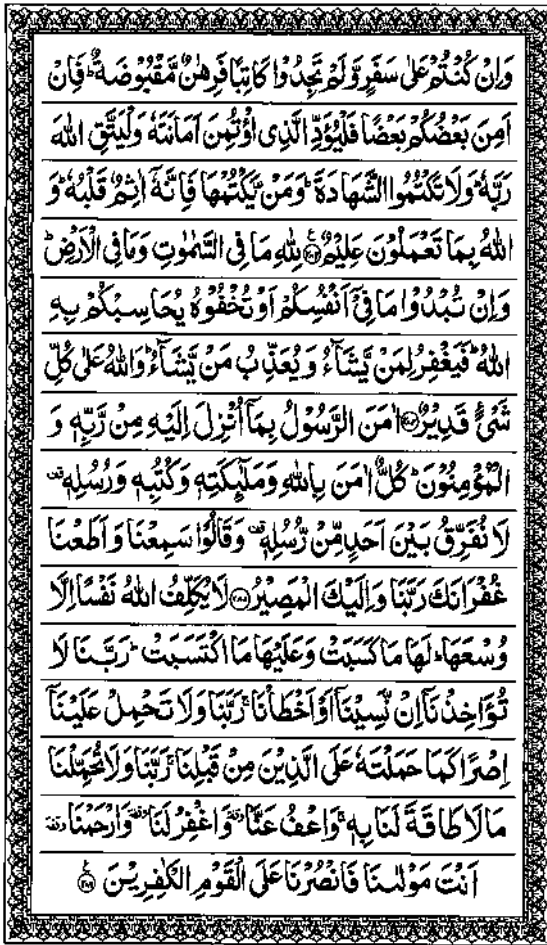 وَاِنْ كُنْتُمْ عَلٰى سَفَرٍ وَّلَمْ تَجِدُوْا كَاتِبًا فَرِهٰنٌ مَّقْبُوْضَةٌ ؕ فَاِنْ
اَمِنَ بَعْضُكُمْ بَعْضًا فَلْيُؤَدِّ الَّذِى اؤْتُمِنَ اَمَانَتَهٗ وَلْيَتَّقِ اللّٰهَ
رَبَّهٗ ؕ وَلَا تَكْتُمُوا الشَّهَادَةَ ؕ وَمَنْ يَّكْتُمْهَا فَاِنَّهٗۤ اٰثِمٌ قَلْبُهٗ ؕ وَ
اللّٰهُ بِمَا تَعْمَلُوْنَ عَلِيْمٌ ﴿۲۸۳﴾ لِلّٰهِ مَا فِى السَّمٰوٰتِ وَمَا فِى الْاَرْضِ ؕ
وَاِنْ تُبْدُوْا مَا فِىْۤ اَنْفُسِكُمْ اَوْ تُخْفُوْهُ يُحَاسِبْكُمْ بِهِ
اللّٰهُ ؕ فَيَغْفِرُ لِمَنْ يَّشَآءُ وَيُعَذِّبُ مَنْ يَّشَآءُ ؕ وَاللّٰهُ عَلٰى كُلِّ
شَىْءٍ قَدِيْرٌ ﴿۲۸۴﴾ اٰمَنَ الرَّسُوْلُ بِمَاۤ اُنْزِلَ اِلَيْهِ مِنْ رَّبِّهٖ وَ
الْمُؤْمِنُوْنَ ؕ كُلٌّ اٰمَنَ بِاللّٰهِ وَمَلٰٓئِكَتِهٖ وَكُتُبِهٖ وَرُسُلِهٖ ۟
لَا نُفَرِّقُ بَيْنَ اَحَدٍ مِّنْ رُّسُلِهٖ ۟ وَقَالُوْا سَمِعْنَا وَاَطَعْنَا
غُفْرَانَكَ رَبَّنَا وَاِلَيْكَ الْمَصِيْرُ ﴿۲۸۵﴾ لَا يُكَلِّفُ اللّٰهُ نَفْسًا اِلَّا
وُسْعَهَا ؕ لَهَا مَا كَسَبَتْ وَعَلَيْهَا مَا اكْتَسَبَتْ ؕ رَبَّنَا لَا
تُؤَاخِذْنَاۤ اِنْ نَّسِيْنَاۤ اَوْ اَخْطَاْنَا ۚ رَبَّنَا وَلَا تَحْمِلْ عَلَيْنَاۤ
اِصْرًا كَمَا حَمَلْتَهٗ عَلَى الَّذِيْنَ مِنْ قَبْلِنَا ۚ رَبَّنَا وَلَا تُحَمِّلْنَا
مَا لَا طَاقَةَ لَنَا بِهٖ ۚ وَاعْفُ عَنَّا ۥ وَاغْفِرْ لَنَا ۥ وَارْحَمْنَا ۥ
اَنْتَ مَوْلٰىنَا فَانْصُرْنَا عَلَى الْقَوْمِ الْكٰفِرِيْنَ ﴿۲۸۶﴾